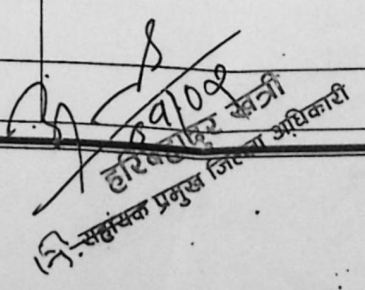 ०९/०२
हरि बहादुर खत्री
प्र. सहायक प्रमुख जिल्ला अधिकारी